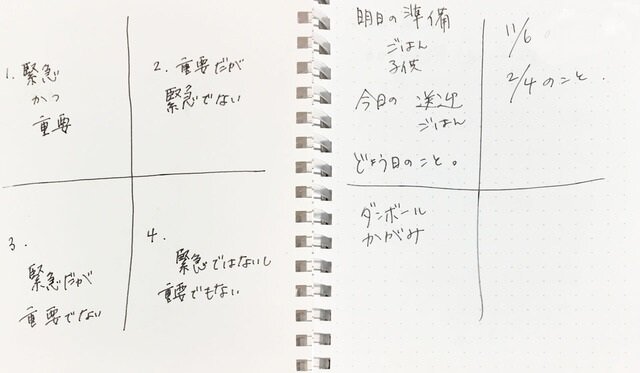 1. 緊急
かつ
重要
2. 重要だが
緊急でない
3.
緊急だが
重要でない
4.
緊急ではないし
重要でもない
明日の準備
ごはん
子供
今日の 送迎
ごはん
どよう日のこと。
11/6
2/4のこと.
ダンボール
かがみ